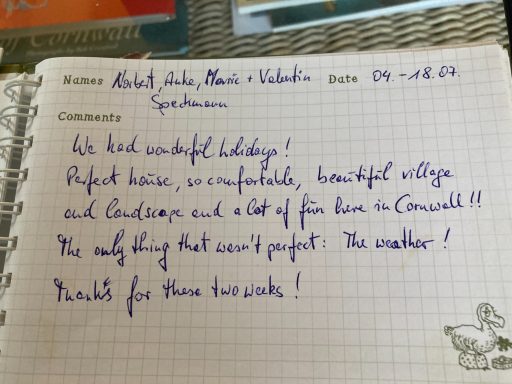 Cornwall
Names Norbert, Anke, Marric + Valentin Date 04.-18.07.
Spechmann
Comments
We had wonderful holidays!
Perfect house, so comfortable, beautiful village
and landscape and a lot of fun here in Cornwall!!
The only thing that wasn't perfect: The weather!
Thanks for these two weeks!